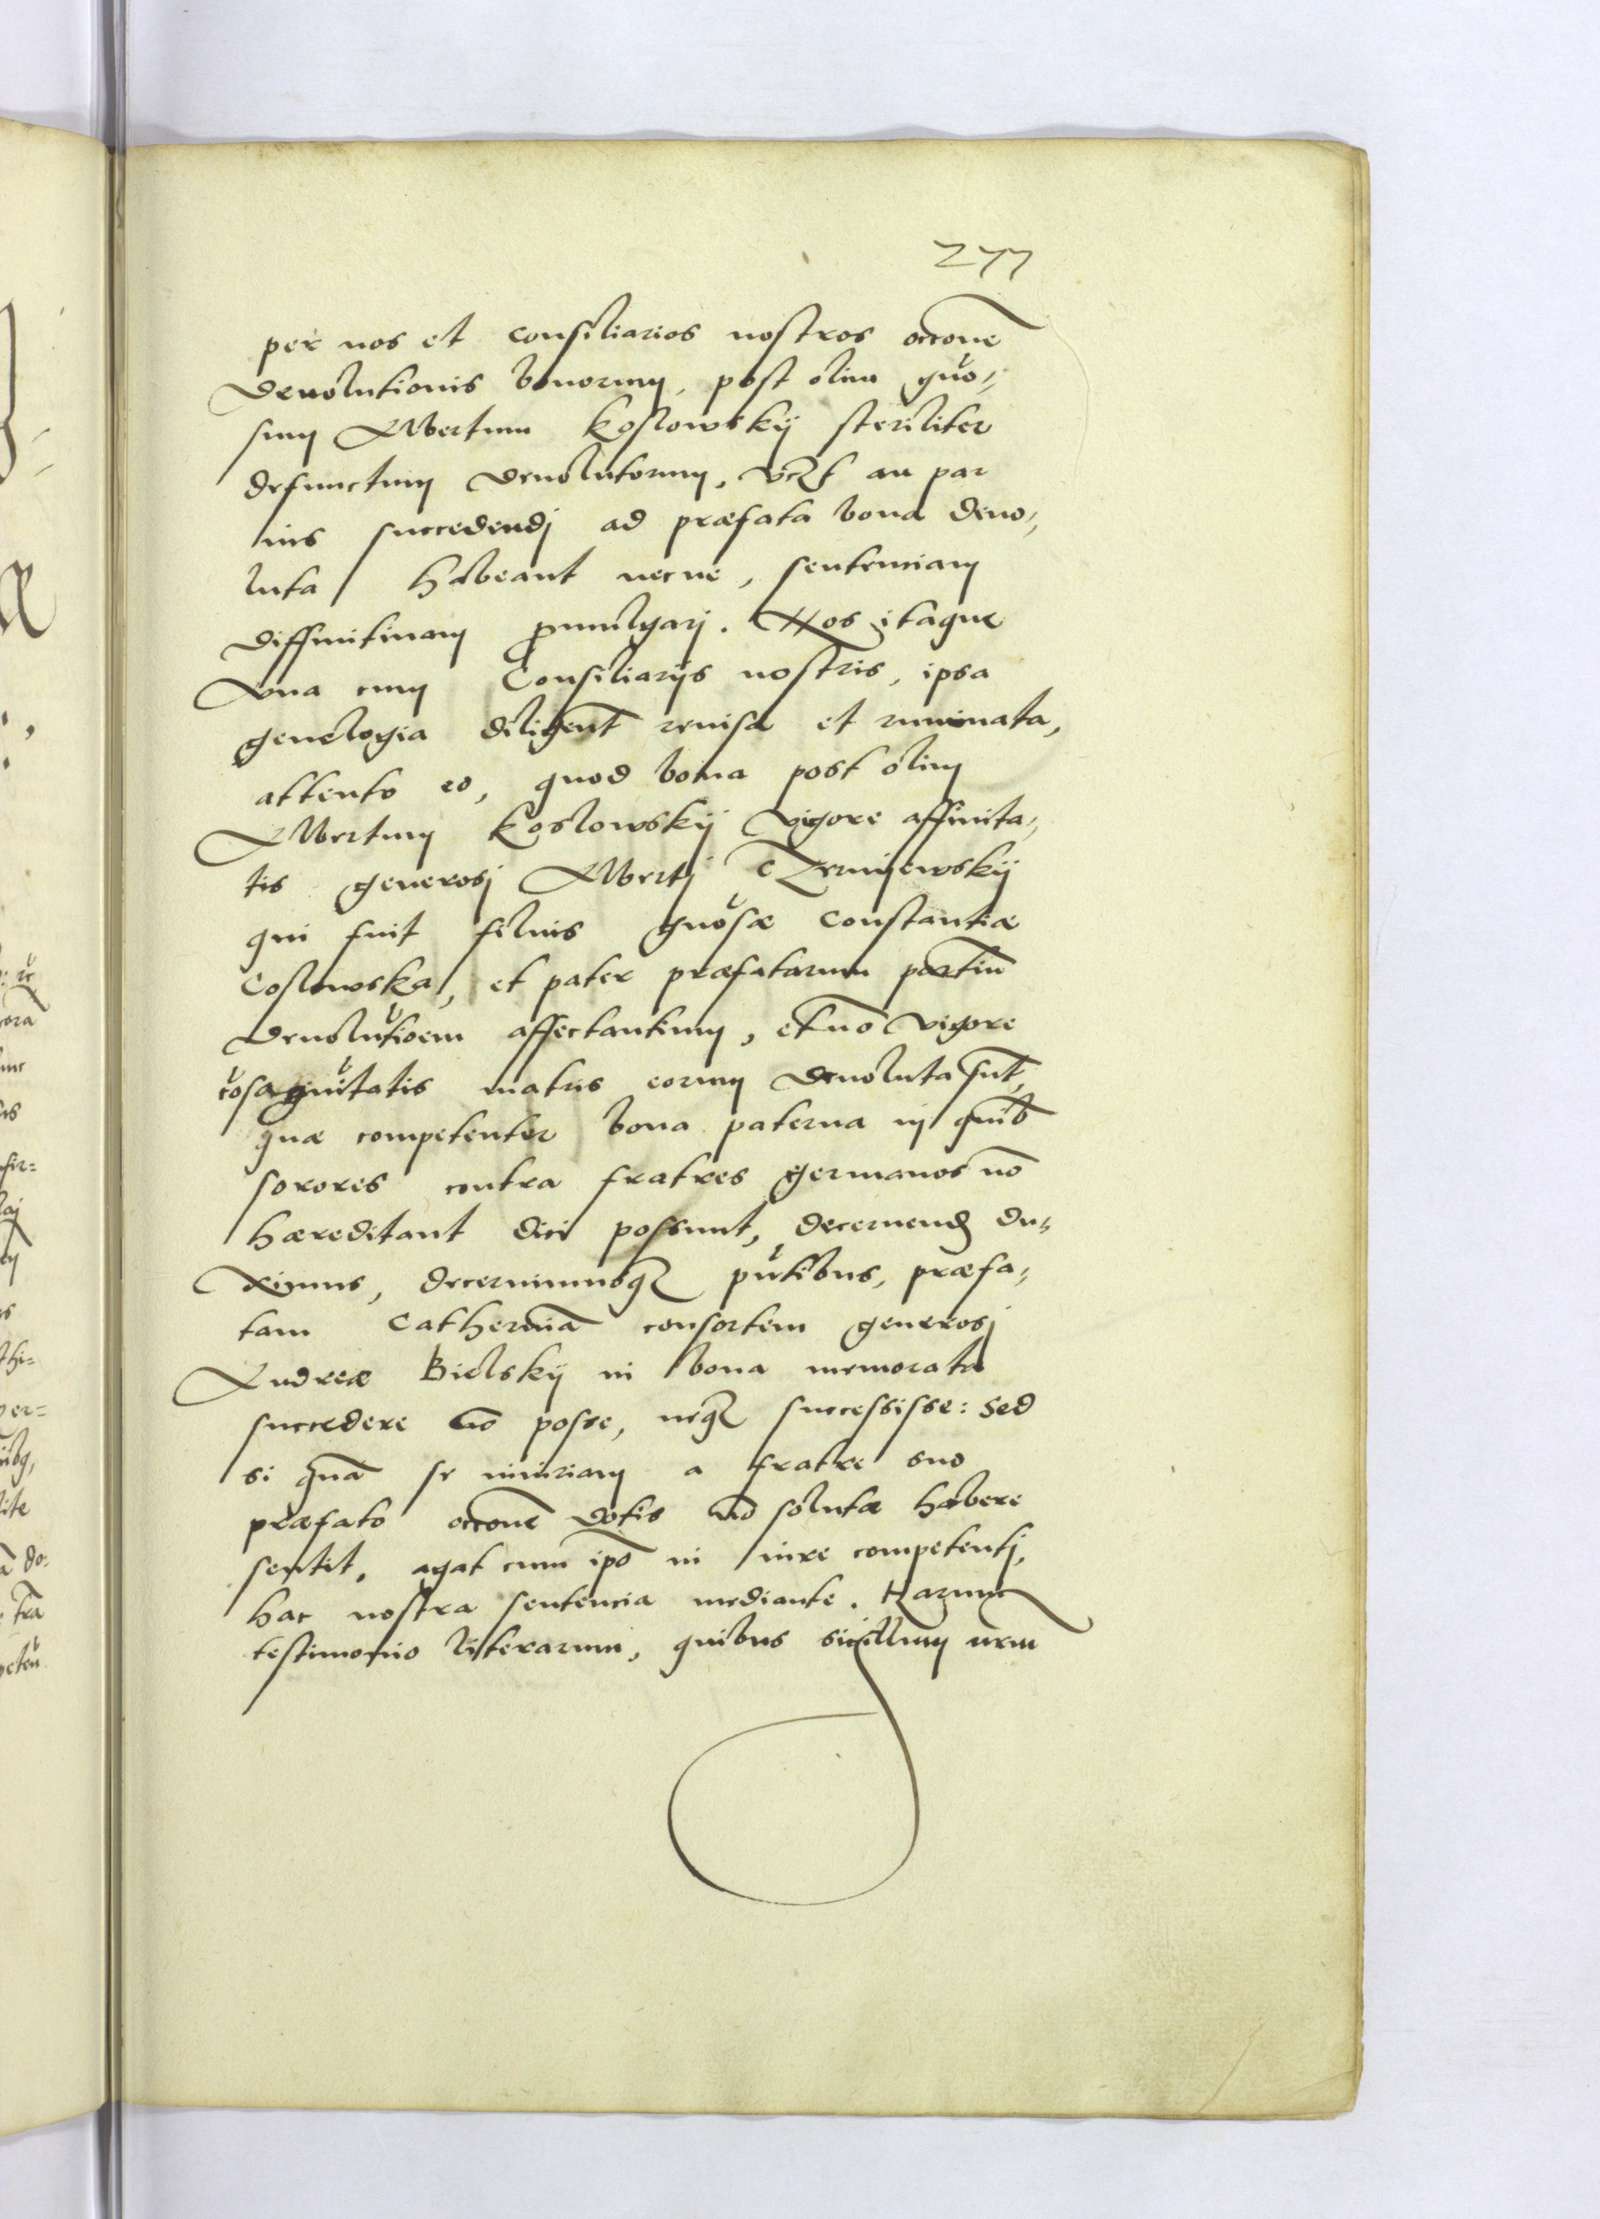 277
per nos et consiliarios nostros occone
devolutionis bonorum, post olim gno-
sum Albertum Koslowskij steriliter
defunctum devolutorum, vczt an par
ius succedendj ad præfata bona devo-
luta habeant necne, sentenciam
diffinitivam promulgarj. Nos itaque
vna cum Consiliarijs nostris, ipsa
genelogia diligent revisa et ruminata,
attento eo, quod bona post olim
Albertum Koslowskij vigore affinita-
tis generosj Albertj Czemijewskij
qui fuit filius gnosæ Constantiæ
Coslowska, et pater præfatarum partiu
devolutioem affectantium, et no vigore
cosaguitatis matris eorum devoluta sut,
quæ competenter bona paterna in quib
sorores contra fratres germanos no
hæreditant dici possunt, decernend du-
ximus, decernimusq putibus, præfa-
tam Catherina consortem generosj
Andreæ Bielskij in bona memorata
succedere no posse, neq successisse: Sed
si qua se iniuriam a fratre suo
præfato occone dotis no solutæ habere
sentit, agat cum ipo in iure competentj,
hac nostra sentencia mediante. Harum
testimonio literarum, quibus sigillum nrm